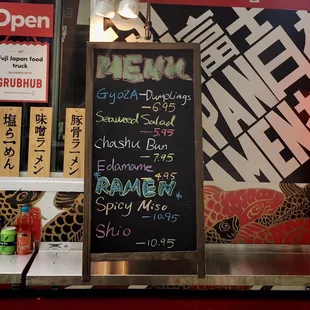 Open
Fuji Japan food
truck
GRUBHUB
塩らーめん
味噌ラーメン
豚骨ラーメン
MENU
GYOZA-Dumplings
-6.95
Seaweed Salad
-5.95
Chashu Bun
-7.95
Edamame
4.95
RAMEN
Spicy Miso
-10.95
Shio
-10.95
富士
JAPAN
RAMEN